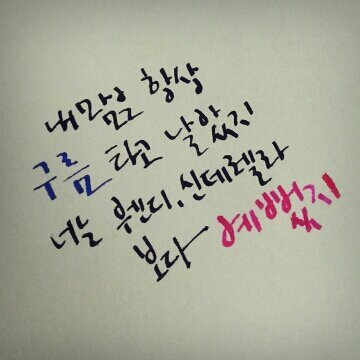 내맘은 항상
구름 타고 날았지
너는 웬디,신데렐라
보다 예뻤지